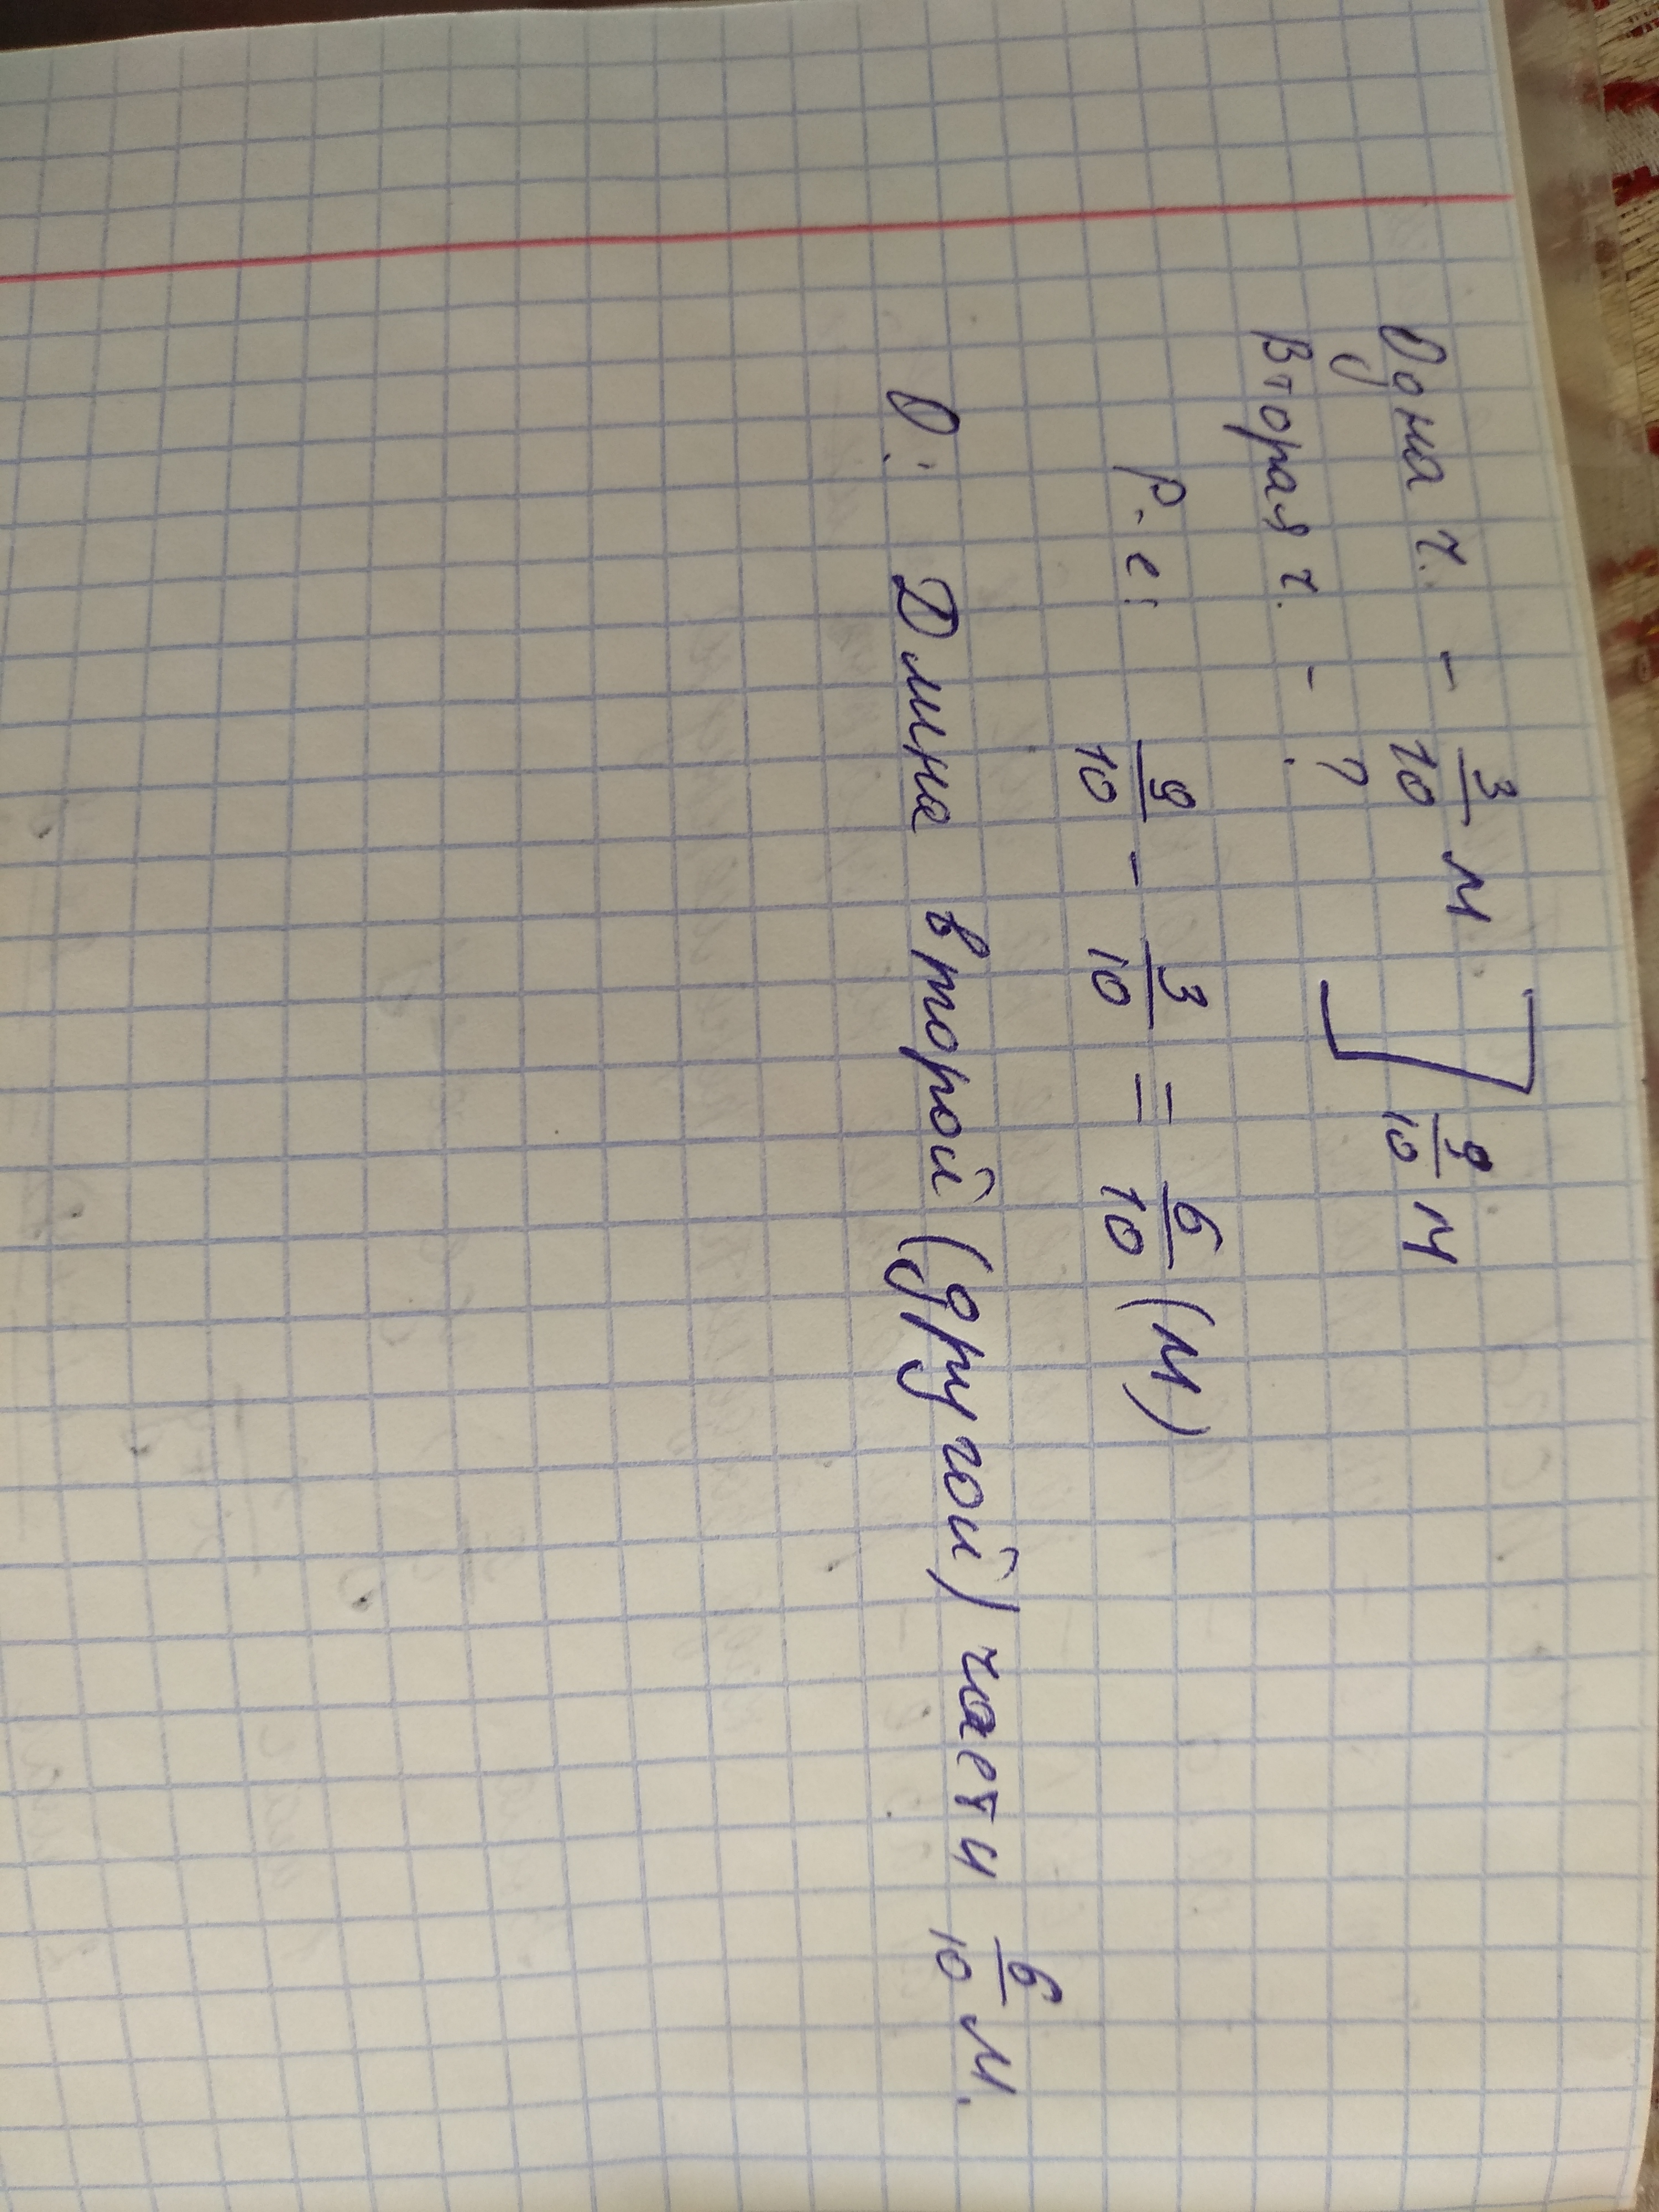 Одна ч. - 3/10 м ] 9/10 м
Вторая ч. - ?
Р. е: 9/10 - 3/10 = 6/10 (м)
О: Длина второй (другой) части 6/10 м.